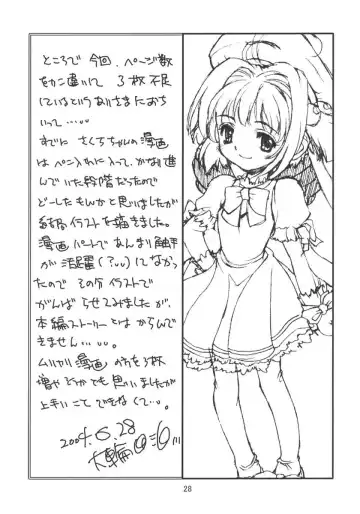 ところで今回、ページ数
をカン違いして 3枚不足
しているというありさまにおち
いって・・・。。
すでに さくらちゃんの漫画
は ペン入れに入って、かなり進
んでいた段階だったので
どーしたもんかと思いましたが
結局イラストを描きました。
漫画パートであんまり触手
が活躍(?。。)してなかっ
たので その分イラストで
がんばらせてみましたが、
本編ストーリーとは からんで
きません・・・。。
ムリヤリ漫画の方を3枚
増やそうかとも思いましたが
上手いこて できなくて・・。
2004.6.28
28